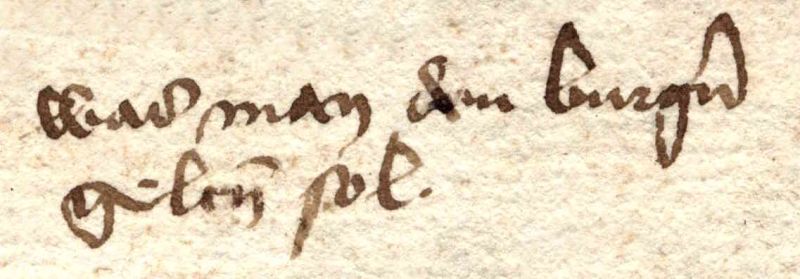 was man den burgern
gelten sol.